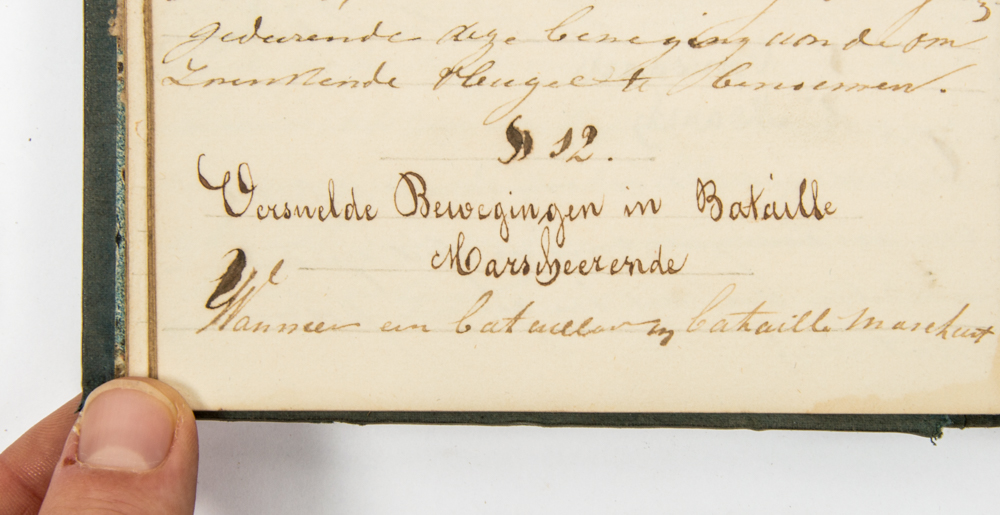 gedurende deze beweging van de om
Zwenkende vleugel te benoemen.
§ 12.
Versnelde Bewegingen in Bataille
Marscheerende
Wanneer een bataillon in bataille marcheert